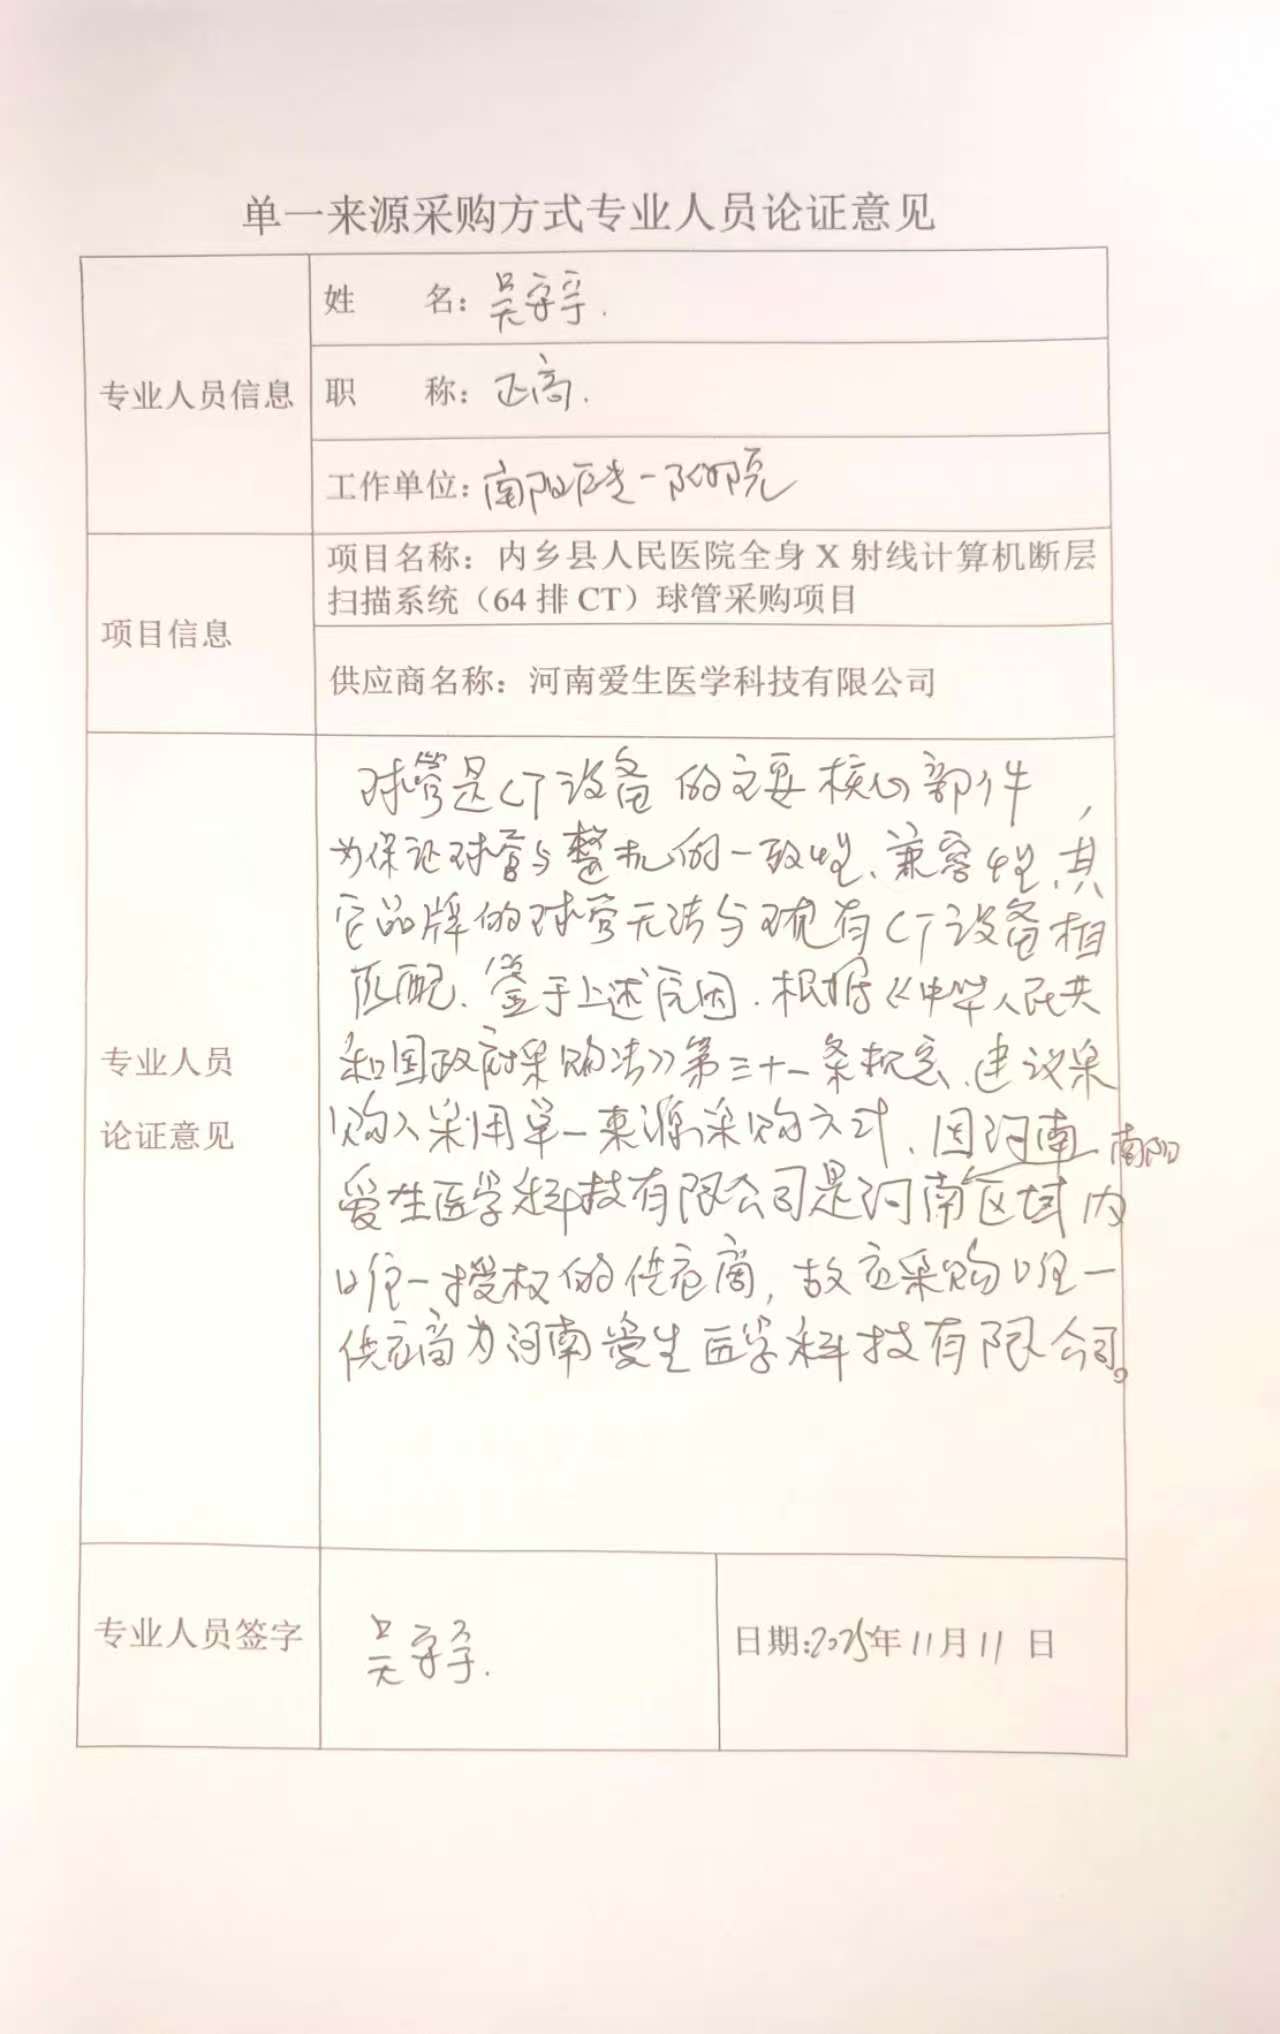 单一来源采购方式专业人员论证意见
专业人员信息
姓 名：吴守宇.
职 称：正高.
工作单位：南阳医专一附院
项目信息
项目名称：内乡县人民医院全身X射线计算机断层
扫描系统（64排CT）球管采购项目
供应商名称：河南爱生医学科技有限公司
专业人员
论证意见
球管是CT设备的主要核心部件，
为保证球管与整机的一致性、兼容性、其
它品牌的球管无法与现有CT设备相
匹配、鉴于上述原因.根据《中华人民共
和国政府采购法》第三十一条规定、建议采
购人采用单一来源采购方式、因河南
南阳
爱生医学科技有限公司是河南区域内
唯一授权的供应商，故应采购唯一
供应商为河南爱生医学科技有限公司。
专业人员签字
吴守宇.
日期:2025年11月11日